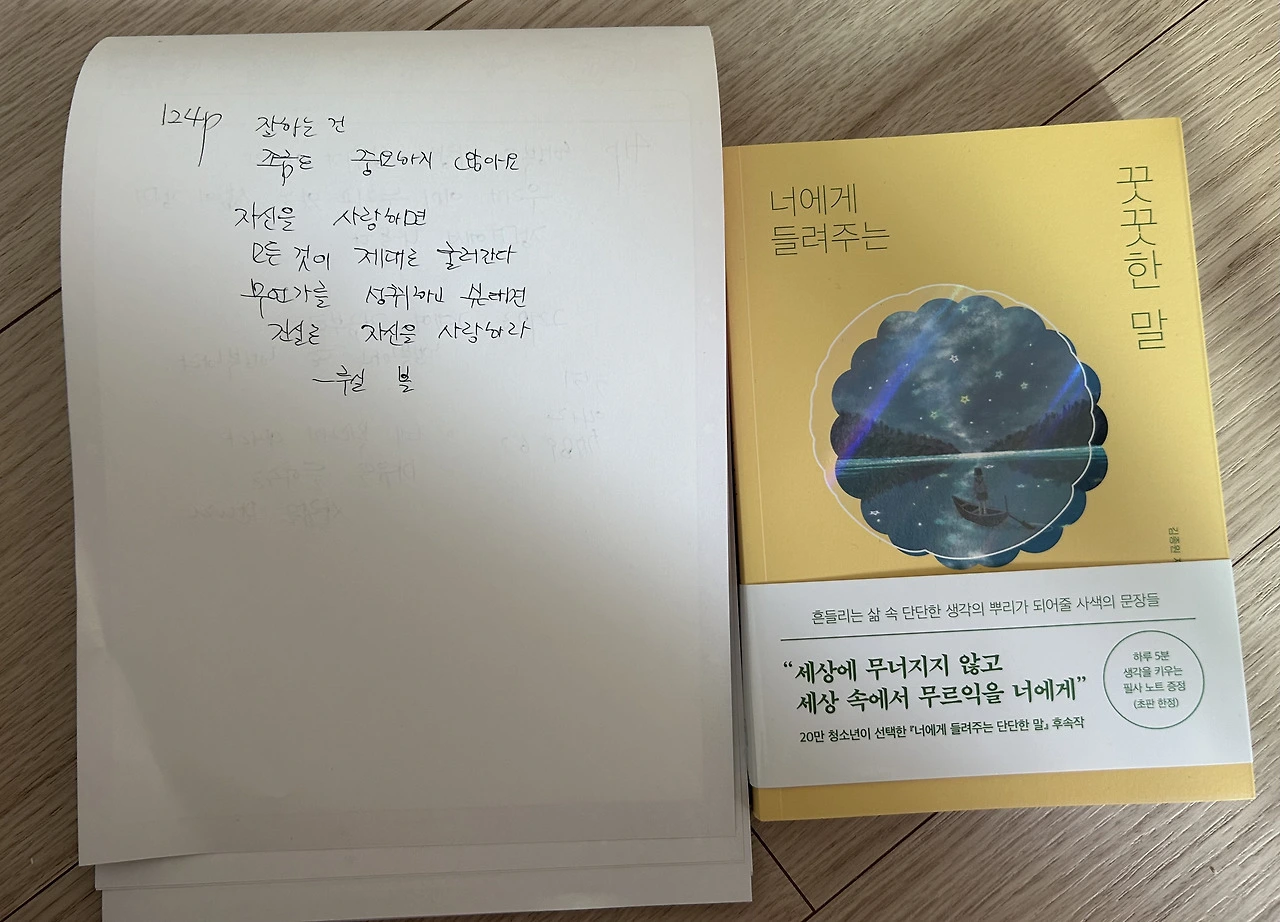 124p 잘하는 건
조금도 중요하지 않아요
자신을 사랑하면
모든 것이 제대로 굴러간다
무언가를 성취하고 싶다면
진실로 자신을 사랑하라
볼
너에게
들려주는
꿋꿋한 말
김종원
흔들리는 삶 속 단단한 생각의 뿌리가 되어줄 사색의 문장들
“세상에 무너지지 않고
세상 속에서 무르익을 너에게”
20만 청소년이 선택한 『너에게 들려주는 단단한 말』 후속작
하루 5분
생각을 키우는
필사 노트 증정
(초판 한정)